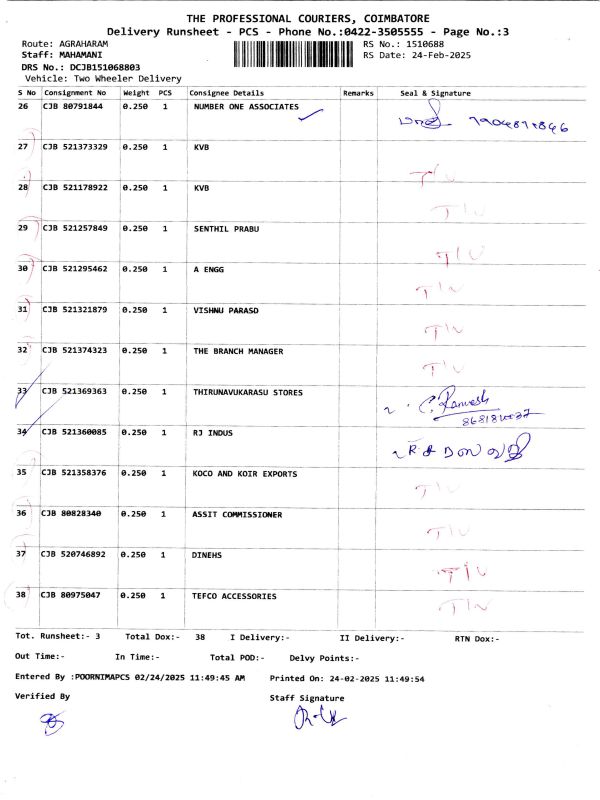 THE PROFESSIONAL COURIERS, COIMBATORE
Delivery Runsheet - PCS - Phone No.:0422-3505555 - Page No.:3
Route: AGRAHARAM RS No.: 1510688
Staff: MAHAMANI RS Date: 24-Feb-2025
DRS No.: DCJB151068803
Vehicle: Two Wheeler Delivery
S No Consignment No Weight PCS Consignee Details Remarks Seal & Signature
26 CJB 80791844 0.250 1 NUMBER ONE ASSOCIATES
27 CJB 521373329 0.250 1 KVB T/V
28 CJB 521178922 0.250 1 KVB T/V
29 CJB 521257849 0.250 1 SENTHIL PRABU T/V
30 CJB 521295462 0.250 1 A ENGG T/V
31 CJB 521321879 0.250 1 VISHNU PARASO T/V
32 CJB 521374323 0.250 1 THE BRANCH MANAGER T/V
33 CJB 521369363 0.250 1 THIRUNAVUKARASU STORES
34 CJB 521360085 0.250 1 RJ INDUS
35 CJB 521358376 0.250 1 KOCO AND KOIR EXPORTS T/V
36 CJB 80828340 0.250 1 ASSIT COMMISSIONER T/V
37 CJB 520746892 0.250 1 DINEHS T/V
38 CJB 80975047 0.250 1 TEFCO ACCESSORIES T/V
Tot. Runsheet:- 3 Total Dox:- 38 I Delivery:- II Delivery:- RTN Dox:-
Out Time:- In Time:- Total POD:- Delvy Points:-
Entered By :POORNIMAPCS 02/24/2025 11:49:45 AM Printed On: 24-02-2025 11:49:54
Verified By Staff Signature